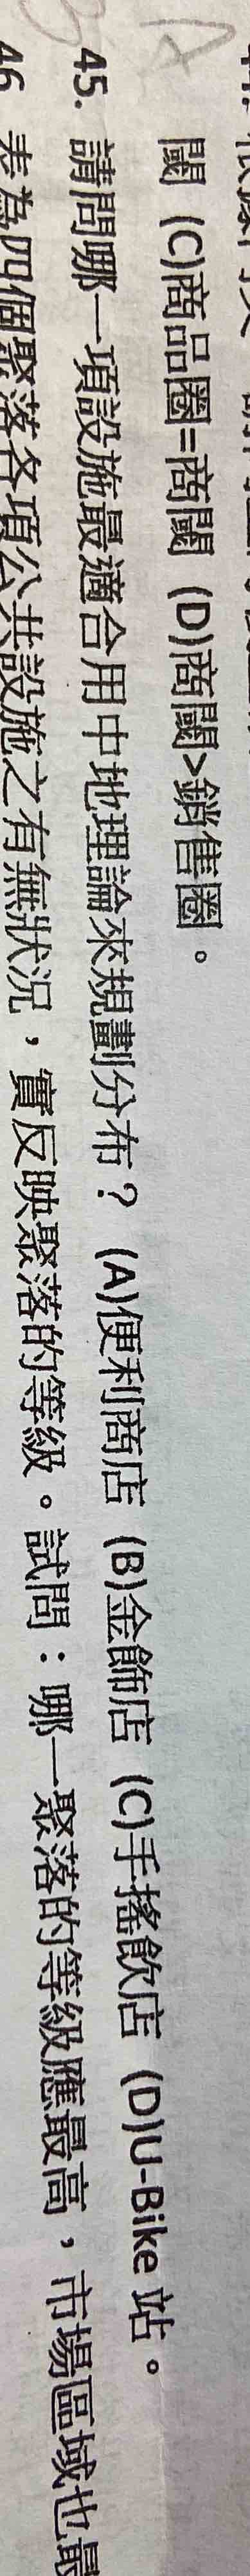 閾 (C)商品圈=商閾 (D)商閾>銷售圈。
45. 請問哪一項設施最適合用中地理論來規劃分布？ (A)便利商店 (B)金飾店 (C)手搖飲店 (D)U-Bike 站。
46 表為四個聚落各項公共設施之有無狀況，實反映聚落的等級。試問：哪一聚落的等級應最高，市場區域也最